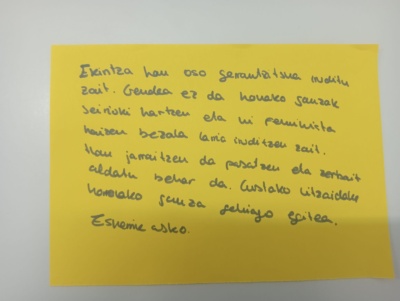 Ekintza hau oso garrantzitsua iruditu
zait. Gendea ez da honako gauzak
serioski hartzen eta ni feminista
naizen bezala larria iruditzen zait.
Hau jarraitzen da pasatzen eta zerbait
aldatu behar da. Gustako litzaidake
honelako gauza gehiago egitea.
Eskerrik asko.